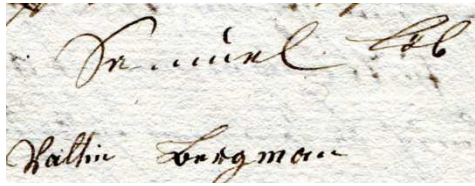 Samuel Löb
Valtin Bergman